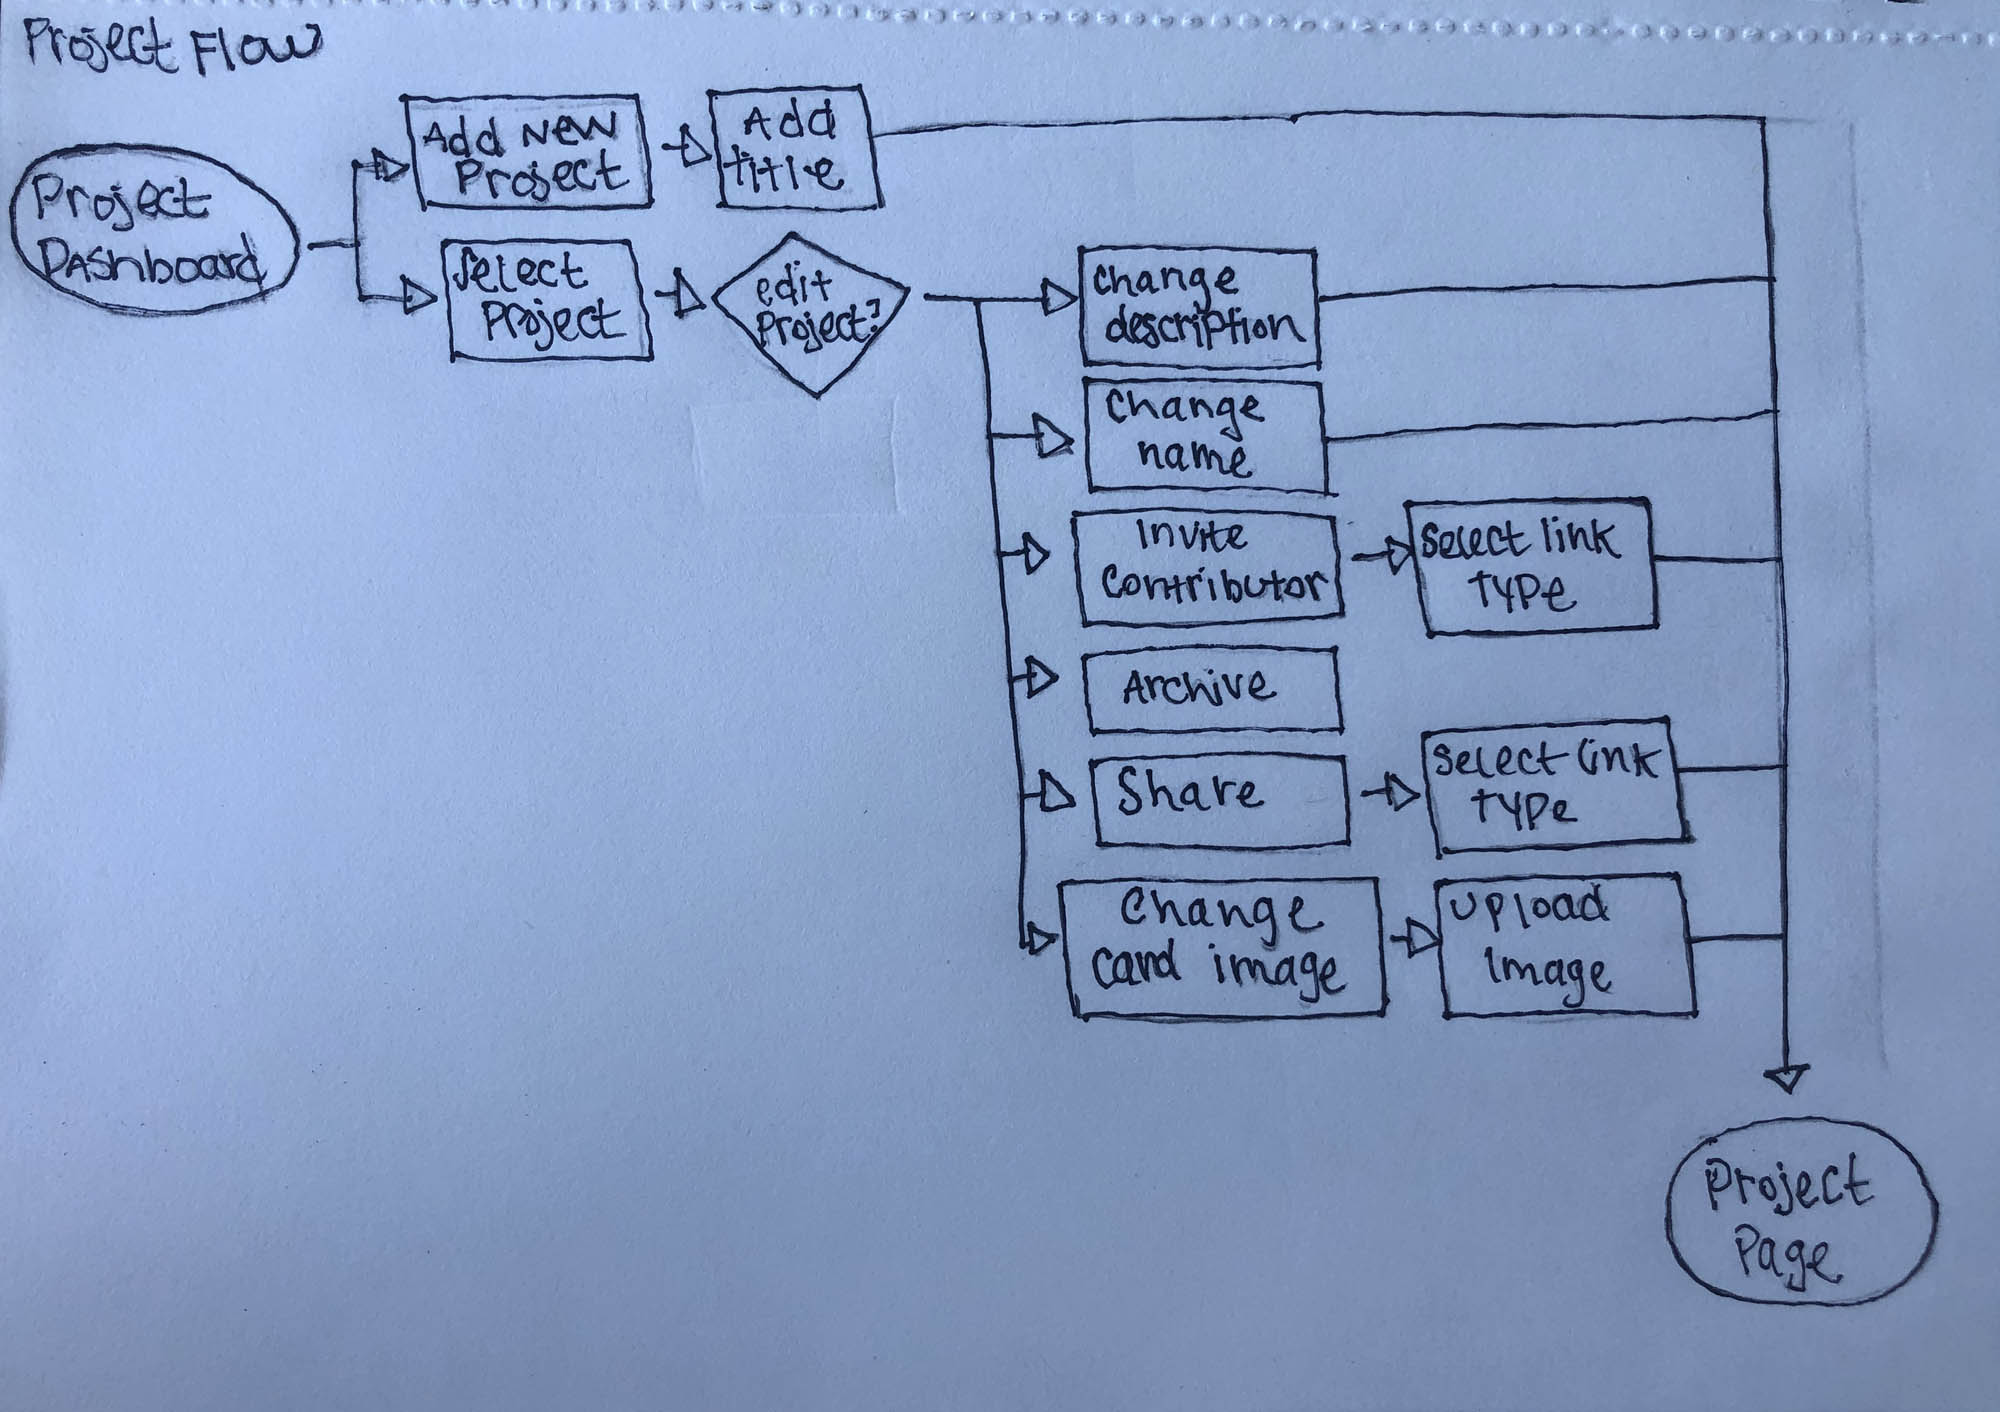 Project Flow
Project
Dashboard
Add New
Project
Add
title
Select
Project
edit
Project?
Change
description
Change
name
Invite
Contributor
Select link
type
Archive
Share
Select link
type
Change
Card image
Upload
Image
Project
Page